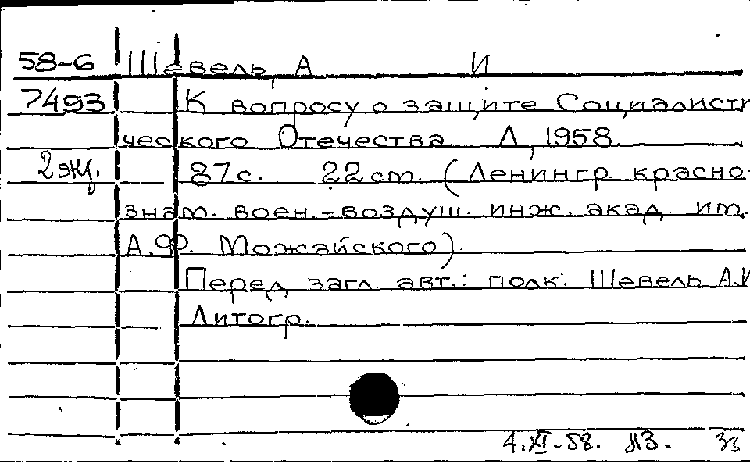 58-6 Шевель, А И
7493 К вопросу о защите Социалисти
ческого Отечества Л, 1958
2 экз. 87 с. 22 см. (Ленингр красно-
знам. воен.-воздуш. инж. акад им.
А.Ф. Можайского).
Перед загл авт.: полк. Шевель А.И
Литогр.
4.XI-58.